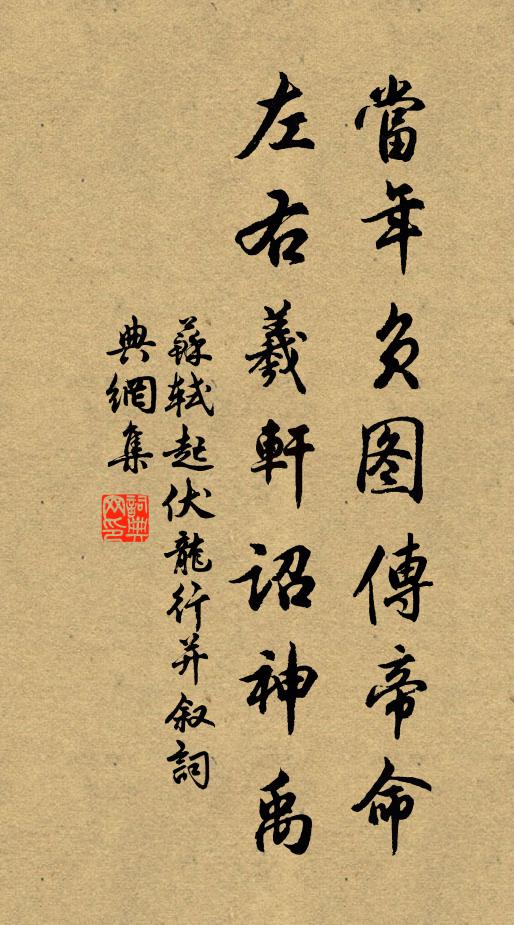 當年負图傳帝命
左右羲軒詔神禹
蘇軾起伏龍行并叙詞
典網集
詞典
网印